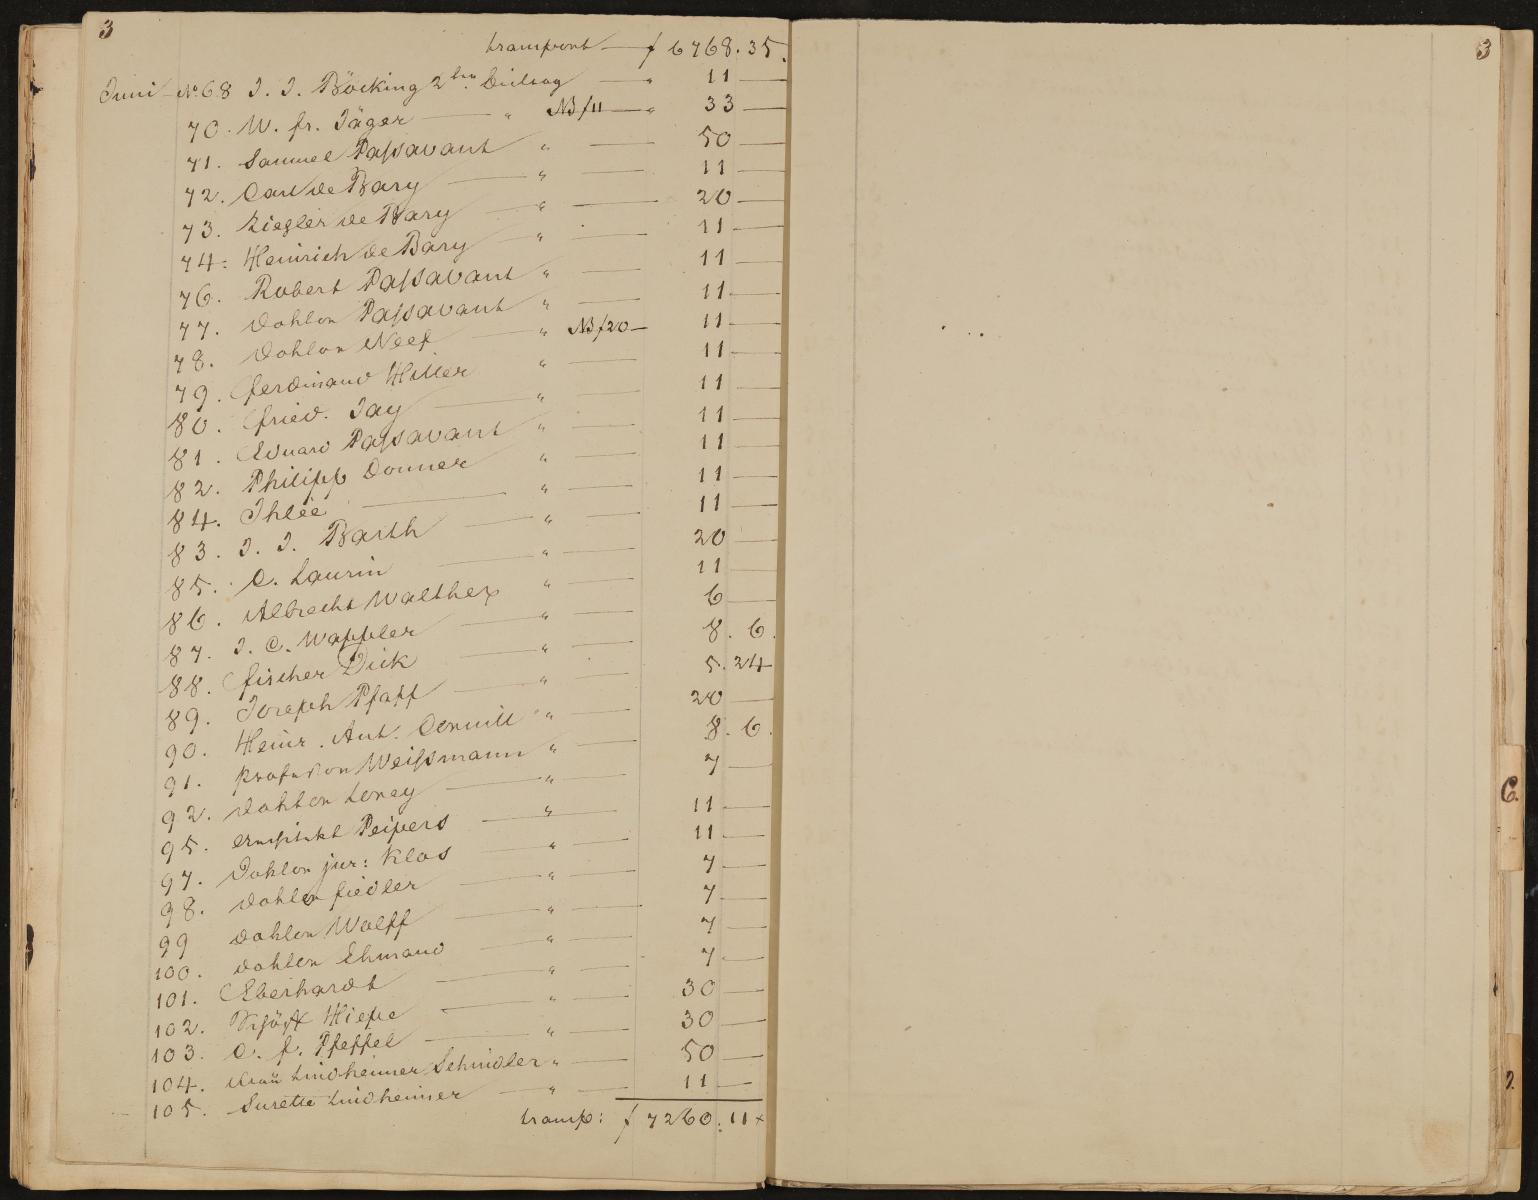 3
transport — f 6768.35.
Juni — No. 68 J. J. Böcking 2ter Beitrag — " 11 —
70. W. fr. Jäger — " NB f 11 — " 33 —
71. Samuel Passavant " — 50 —
72. Carl de Bary — " — 11 —
73. Ziegler de Bary — " — 20 —
74. Heinrich de Bary — " — 11 —
76. Robert Passavant " — 11 —
77. Doktor Passavant " — 11 —
78. Doktor Neef — " NB f 20 — 11 —
79. Ferdinand Hiller " — 11 —
80. Fried. Jay — " — 11 —
81. Eduard Passavant " — 11 —
82. Philipp Donner " — 11 —
84. Ihlée — " — 11 —
83. J. J. Barth — " — 11 —
85. C. Laurin — " — 20 —
86. Albrecht Walther " — 11 —
87. J. C. Wappler — " — 6 —
88. Fischer Dick — " — 8. 6.
89. Joseph Pfaff — " — 5. 24
90. Heinr. Ant. Cornill " — 20 —
91. Professor Weissmann " — 8. 6.
92. Doktor Lorey — " — 7 —
95. Peipers — " — 11 —
97. Doktor jur: Klos — " — 11 —
98. Doktor Fiedler — " — 7 —
99 Doktor Wolff — " — 7 —
100. Doktor Ehmand — " — 7 —
101. Eberhardt — " — 7 —
102. Hiepe — " — 30 —
103. C. f. Pfeffel — " — 30 —
104. Frau Lindheimer Schindler " — 50 —
105. Susette Lindheimer — " — 11 —
transp: f 7260. 11 x
3
C.